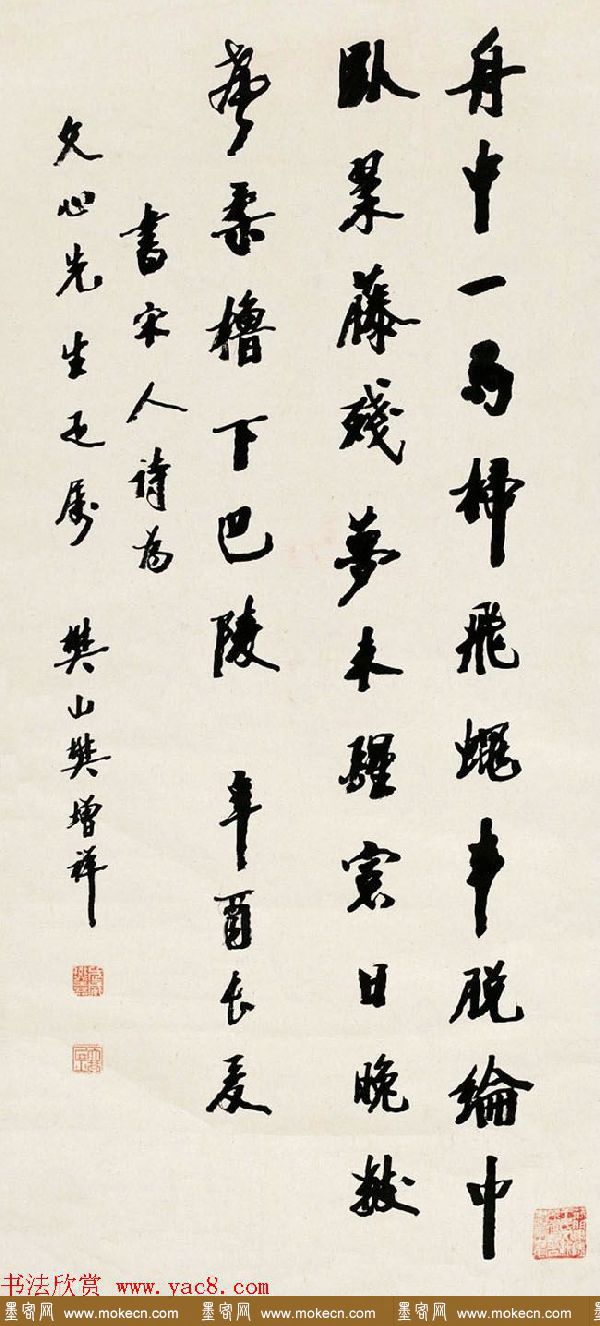 舟中一雨掃飛蠅半脱綸巾
臥翠藤殘夢未醒窓日晚數
聲柔櫓下巴陵 辛酉長夏
書宋人詩為
久心先生正属 樊山樊增祥
书法欣赏 www.yac8.com
墨客网 www.mokecn.com 墨客网 www.mokecn.com 墨客网 www.mokecn.com